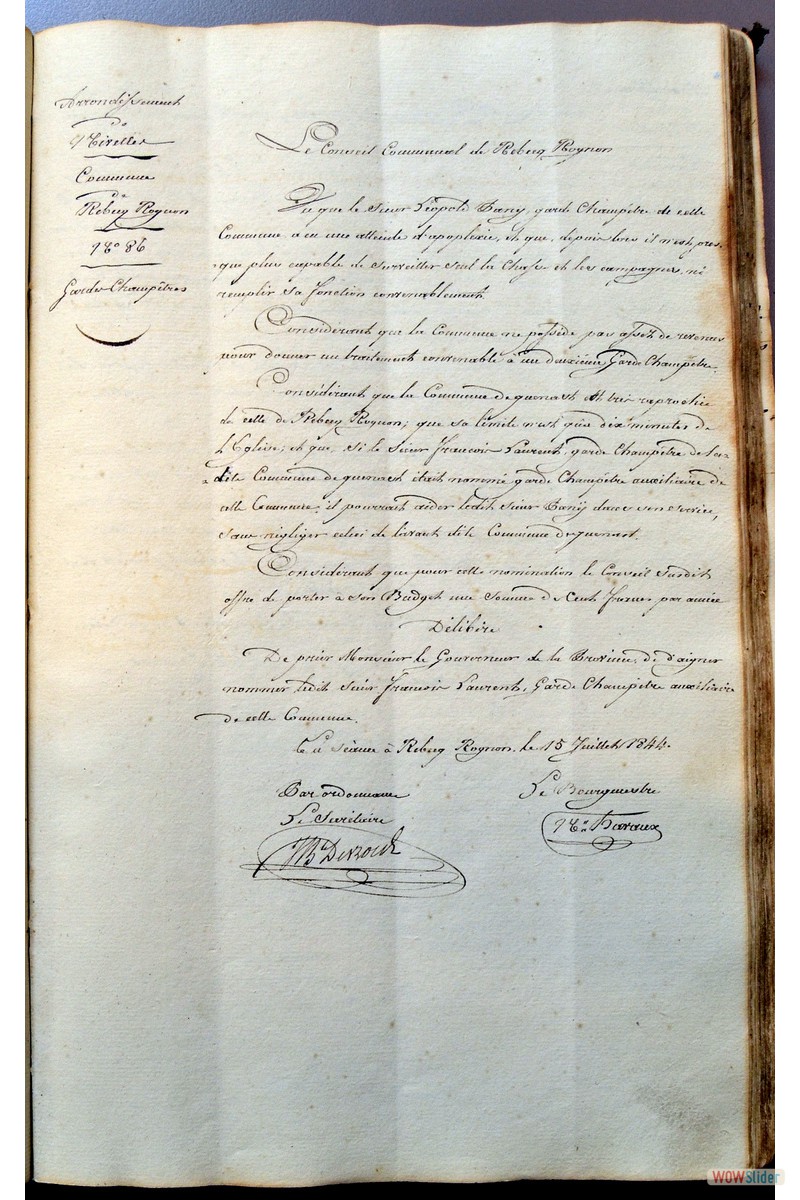 Arrondissement
de
Nivelles
Commune
de
Rebecq Rognon
N° 86
Gardes Champêtres
Le Conseil Communal de Rebecq Rognon
Vu que le Sieur Léopold Pany, garde Champêtre de cette
Commune a eu une atteinte d'apoplexie, et que, depuis lors il n'est pres-
que plus capable de surveiller seul la Chasse et les campagnes, ni
remplir sa fonction convenablement.
Considérant que la Commune ne possède pas assez de revenus
pour donner un traitement convenable à un deuxième Garde Champêtre.
Considérant que la Commune de quenast est très rapprochée
de celle de Rebecq Rognon; que sa limite n'est qu'à dix minutes de
l'Eglise; et que, si le Sieur Francois Laurent, garde Champêtre de la
dite Commune de quenast était nommé garde Champêtre auxiliaire de
cette Commune, il pourrait aider ledit sieur Pany dans son service,
sans négliger celui de l'avant dite Commune de quenast.
Considérant que pour cette nomination le Conseil susdit
offre de porter à son Budget une somme de Cent francs par année
Délibère
De prier Monsieur le Gouverneur de la Province, de daigner
nommer ledit sieur Francois Laurent, Garde Champêtre auxiliaire
de cette Commune.
En Séance à Rebecq Rognon, le 15 Juillet 1844.
Par ordonnance
Le Secrétaire
Le Bourgmestre
WOWSlider